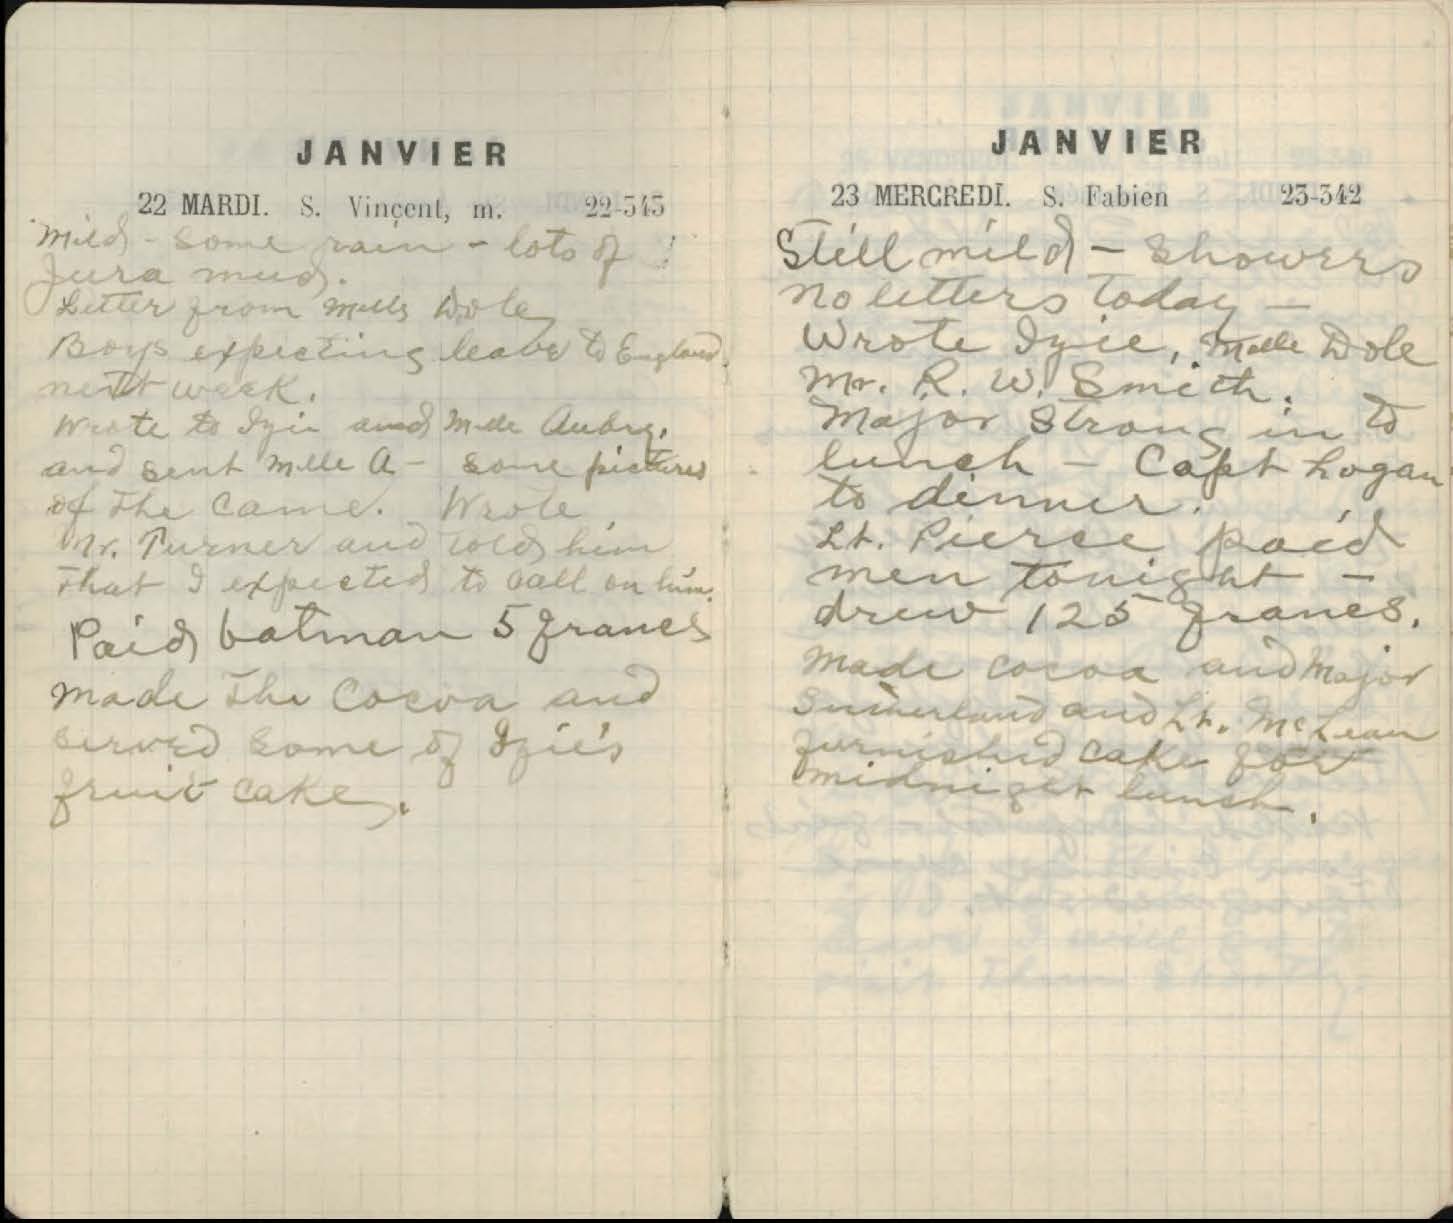 JANVIER
22 MARDI. S. Vincent, m. 22-343
Mild - some rain - lots of
Jura mud.
Letter from Mells Dole
Boys expecting leave to England
next week.
Wrote to Izie and Mlle Aubry.
and sent Mlle A - some pictures
of the Came. Wrote
Mr. Turner and told him
that I expected to call on him.
Paid batman 5 francs
Made the Cocoa and
served some of Izie's
fruit cake.
JANVIER
23 MERCREDI. S. Fabien 23-342
Still mild - showers
No letters today -
Wrote Izie, Mlle Dole
Mr. R. W. Smith.
Major Strong in to
lunch - Capt Logan
to dinner.
Lt. Pierce paid
men tonight -
drew 125 francs.
Made cocoa and Major
Sutherland and Lt. McLean
furnished cake for
midnight lunch.